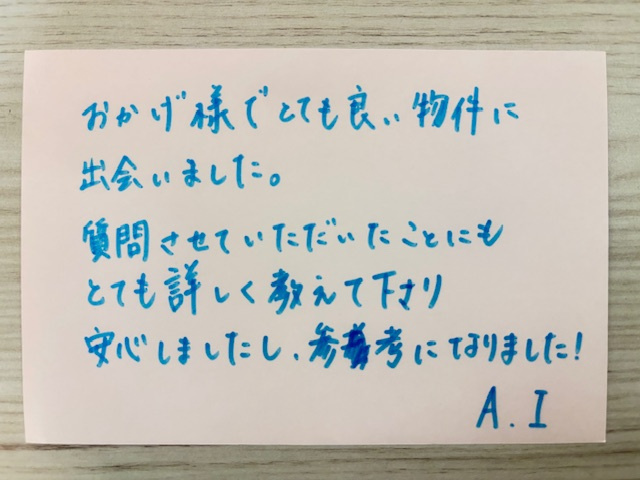 おかげ様でとても良い物件に
出会いました。
質問させていただいたことにも
とても詳しく教えて下さり
安心しましたし、参考になりました!
A.I